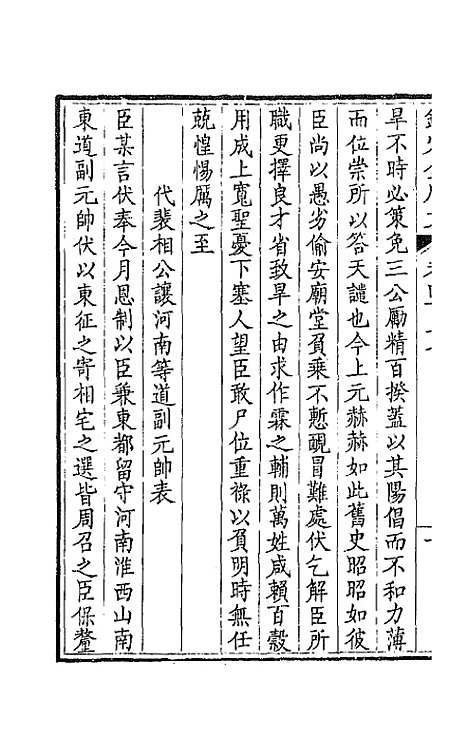 旱不時必策免三公勵精百揆蓋以其陽倡而不和力薄
而位崇所以答天譴也今上元赫赫如此舊史昭昭如彼
臣尚以愚劣偷安廟堂負乘不慙靦冒難處伏乞解臣所
職更擇良才省致旱之由求作霖之輔則萬姓咸賴百穀
用成上寬聖憂下塞人望臣敢尸位重祿以負明時無任
兢惶惕厲之至
代裴相公讓河南等道副元帥表
臣某言伏奉今月恩制以臣兼東都留守河南淮西山南
東道副元帥伏以東征之寄相宅之選皆周召之臣保釐